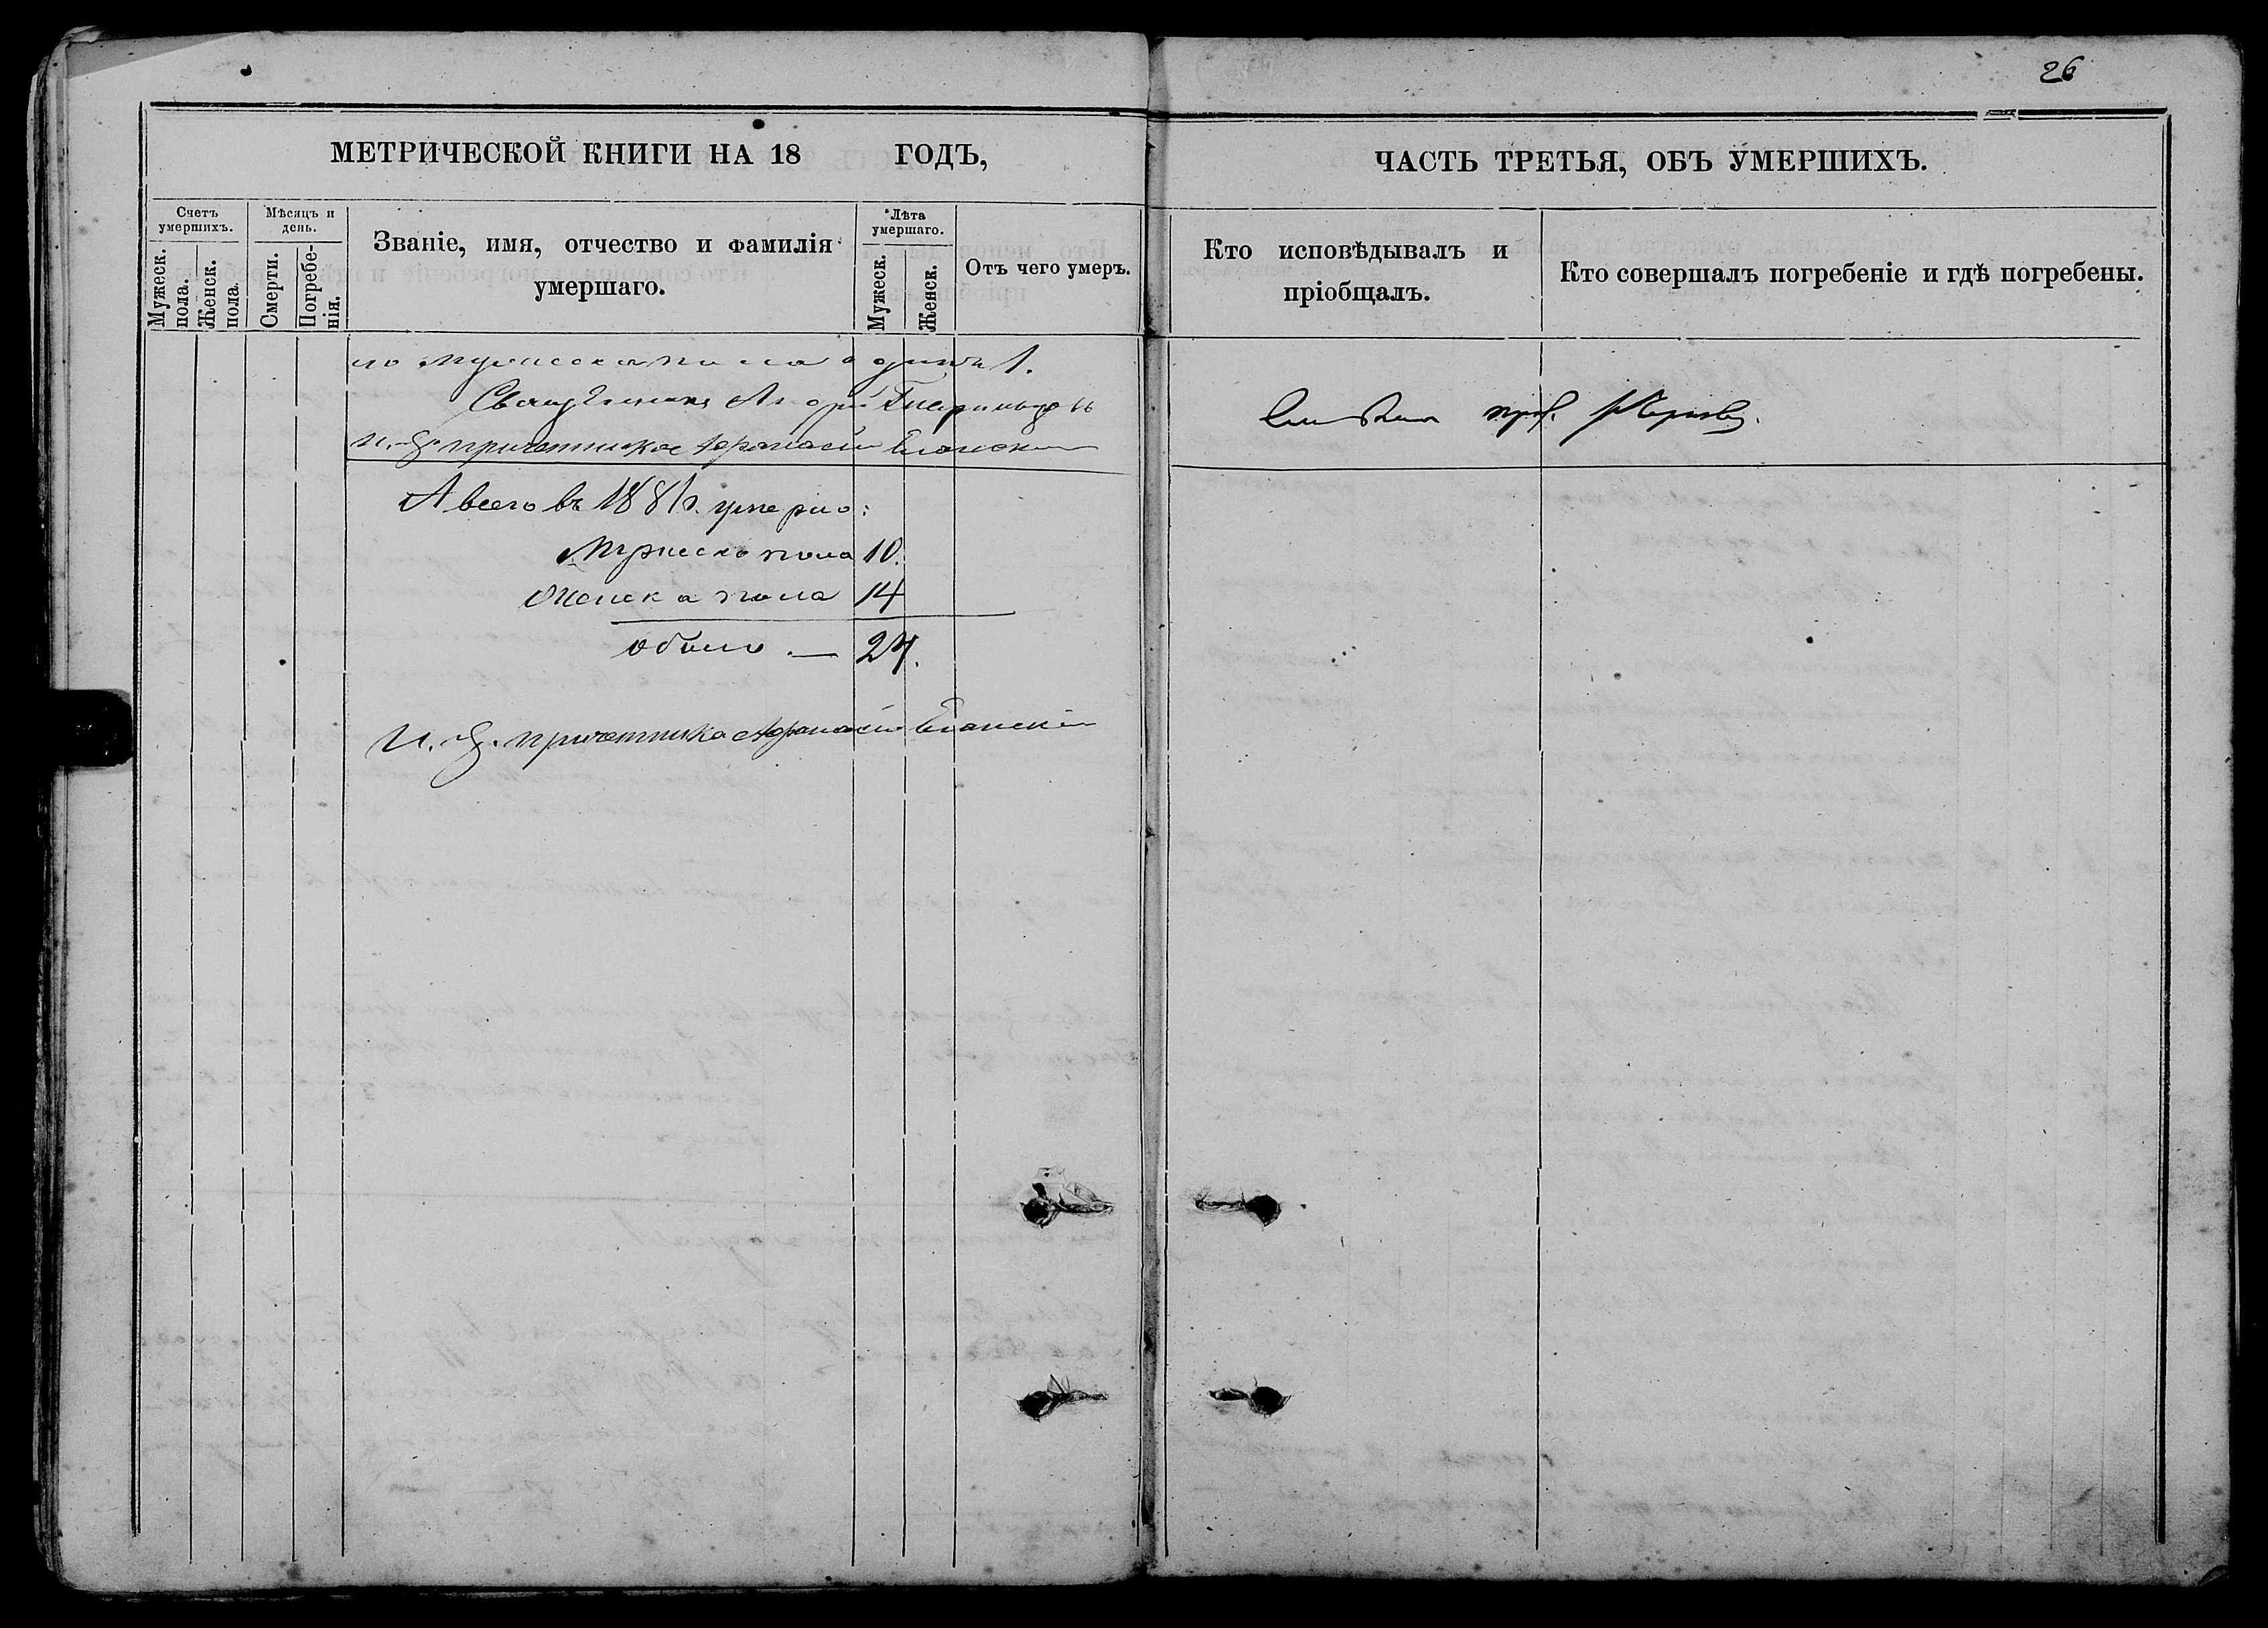 26
МЕТРИЧЕСКОЙ КНИГИ НА 18 ГОДЪ,
ЧАСТЬ ТРЕТЬЯ, ОБЪ УМЕРШИХЪ.
Счетъ умершихъ.
Мужеск. пола.
Женск. пола.
Мѣсяцъ и день.
Смерти.
Погребенія.
Званіе, имя, отчество и фамилія умершаго.
Лѣта умершаго.
Мужеск.
Женск.
Отъ чего умеръ.
Кто исповѣдывалъ и пріобщалъ.
Кто совершалъ погребеніе и гдѣ погребены.
но мужеска пола одинъ 1.
Священникъ
И. д. причетника Афанасій
А всего въ 1881 г. умерло:
Мужеска пола 10.
Женска пола 14
обоего — 24.
И. д. причетника Афанасій